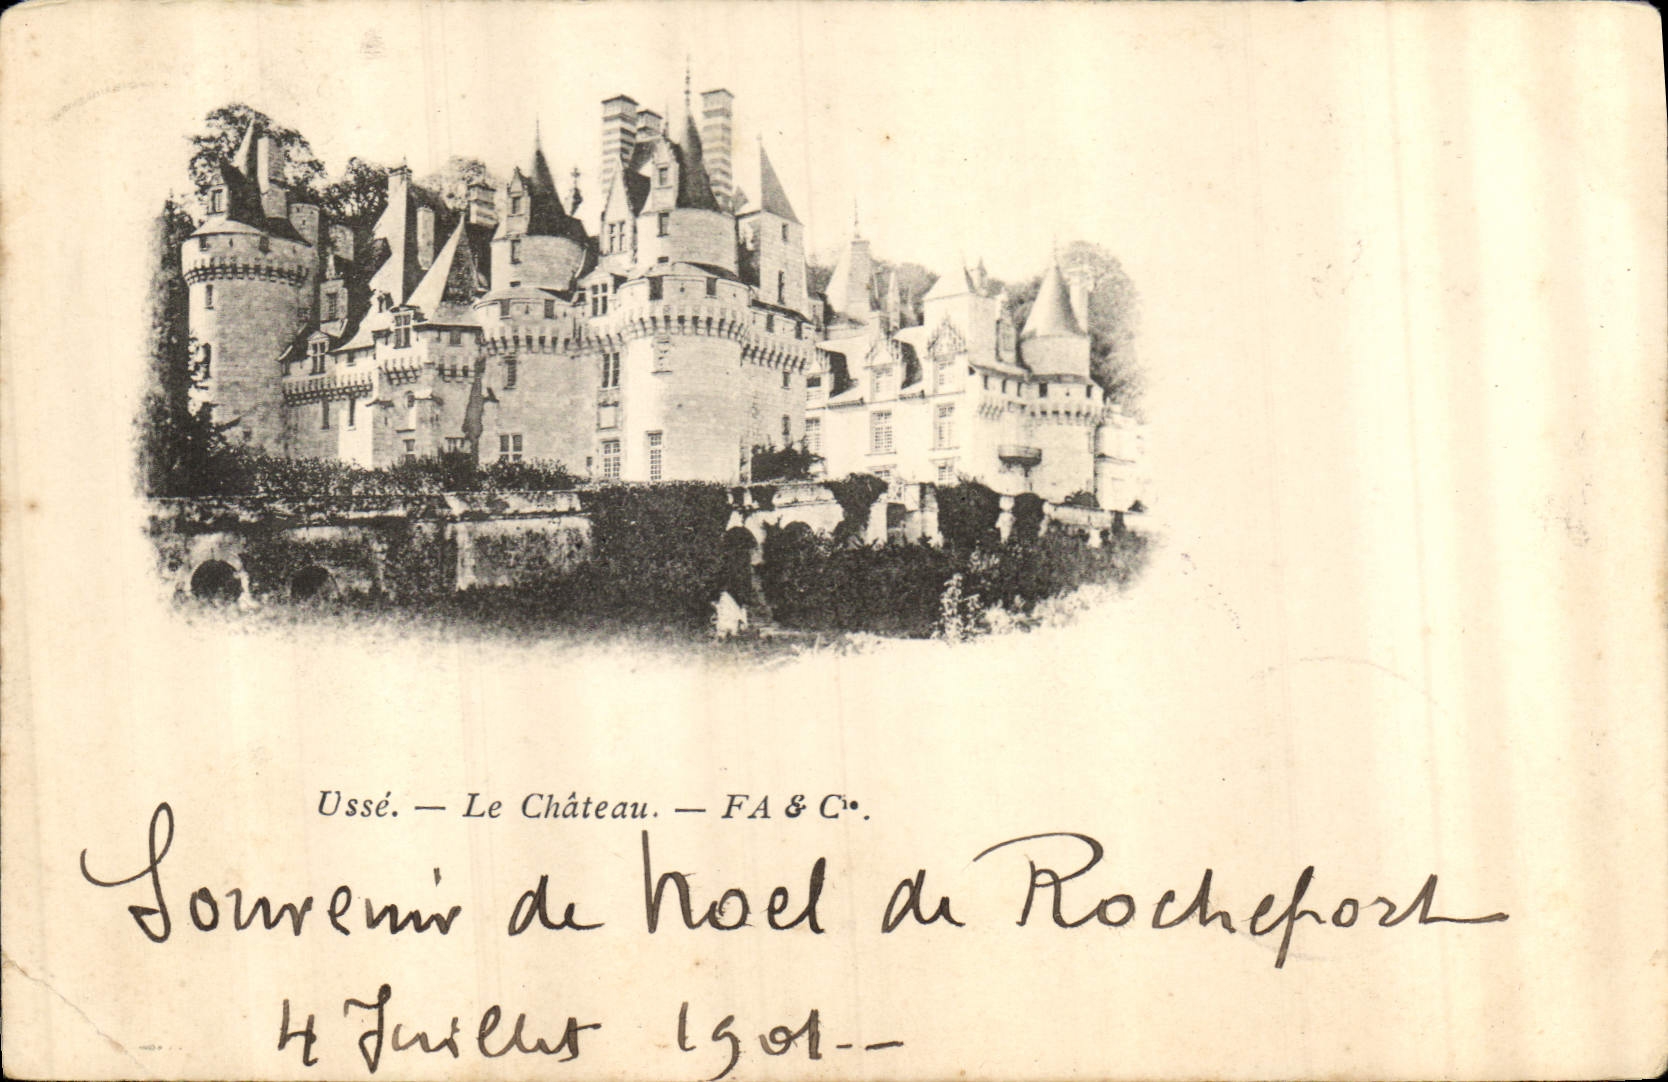 Ussé. — Le Château. — FA & Cie.
Souvenir de Noel de Rochefort
4 Juillet 1901--